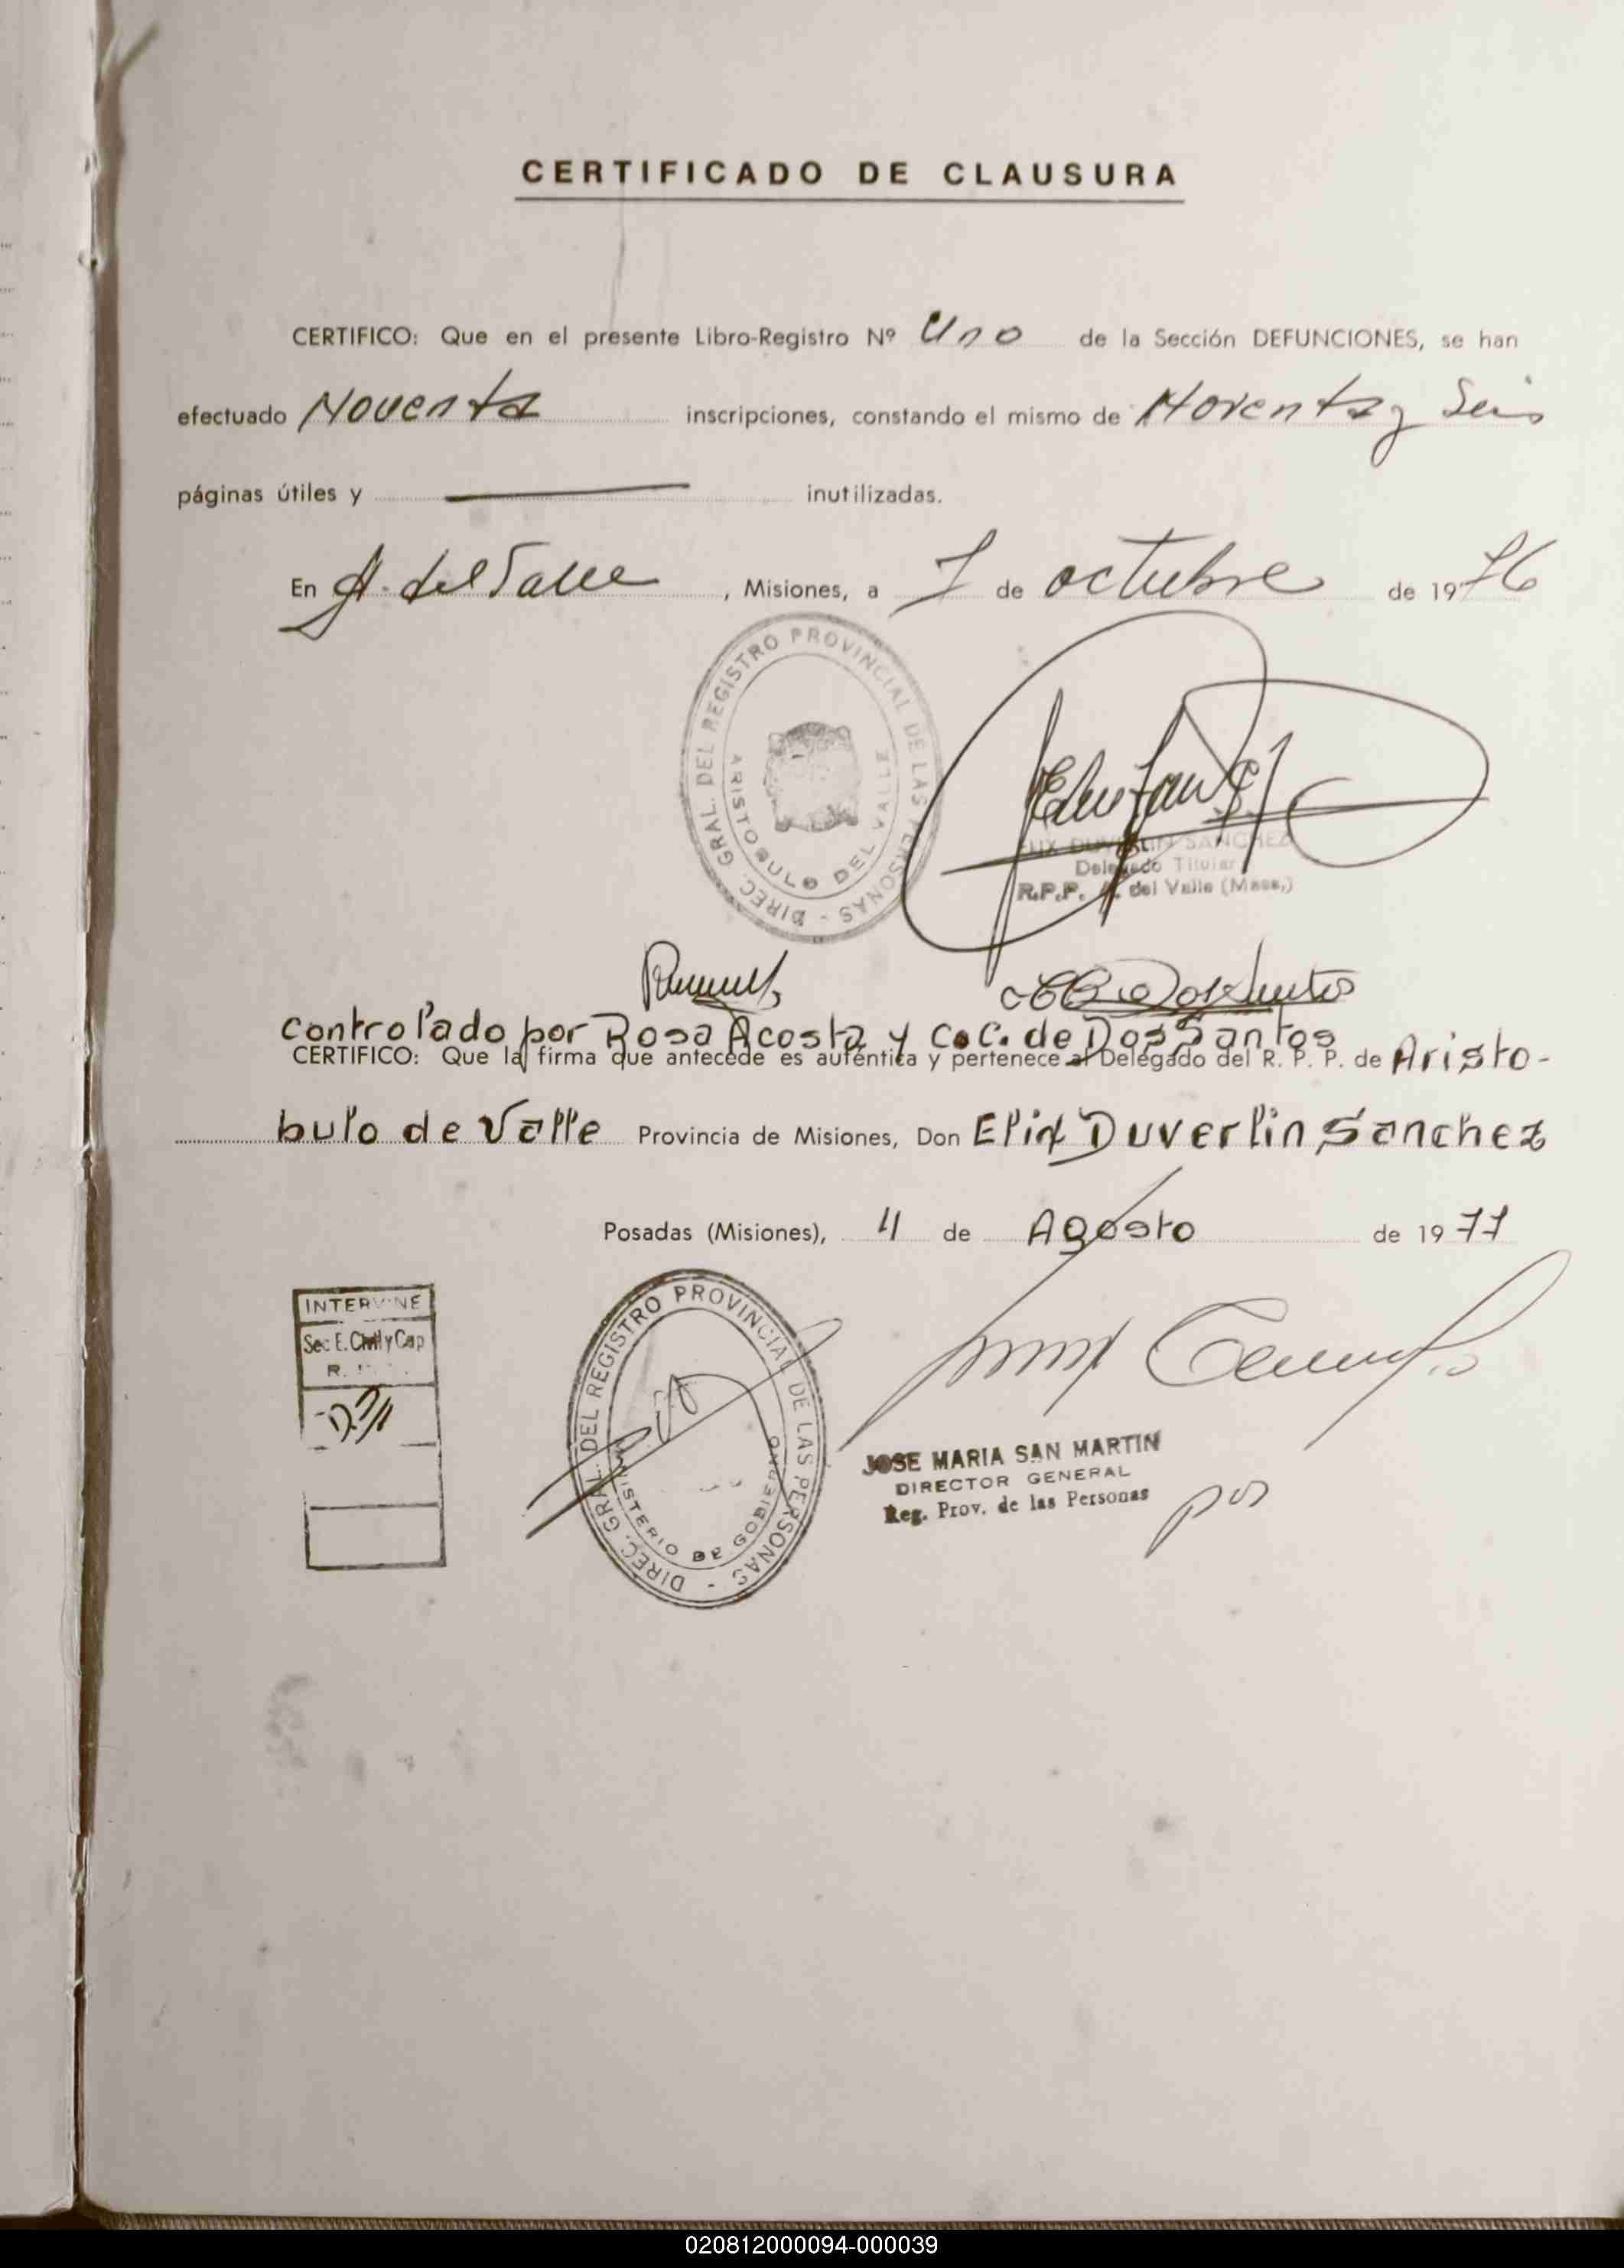 CERTIFICADO DE CLAUSURA
CERTIFICO: Que en el presente Libro-Registro Nº Uno de la Sección DEFUNCIONES, se han
efectuado Noventa inscripciones, constando el mismo de Noventa y Seis
páginas útiles y inutilizadas.
En A. del Valle, Misiones, a 7 de octubre de 1976
DIREC. GRAL. DEL REGISTRO PROVINCIAL DE LAS PERSONAS -
ARISTOBULO DEL VALLE
ELIX DUVERLIN SANCHEZ
Delegado Titular
R.P.P. A. del Valle (Mnes.)
Controlado por Rosa Acosta y C.C. de Dos Santos
CERTIFICO: Que la firma que antecede es auténtica y pertenece al Delegado del R. P. P. de Aristo-
bulo de Valle Provincia de Misiones, Don Elix Duverlin Sanchez
Posadas (Misiones), 4 de Agosto de 1977
INTERVINE
Sec E. Civil y Cap
R.
DIREC. GRAL. DEL REGISTRO PROVINCIAL DE LAS PERSONAS -
MINISTERIO DE GOBIERNO
JOSE MARIA SAN MARTIN
DIRECTOR GENERAL
Reg. Prov. de las Personas
020812000094-000039